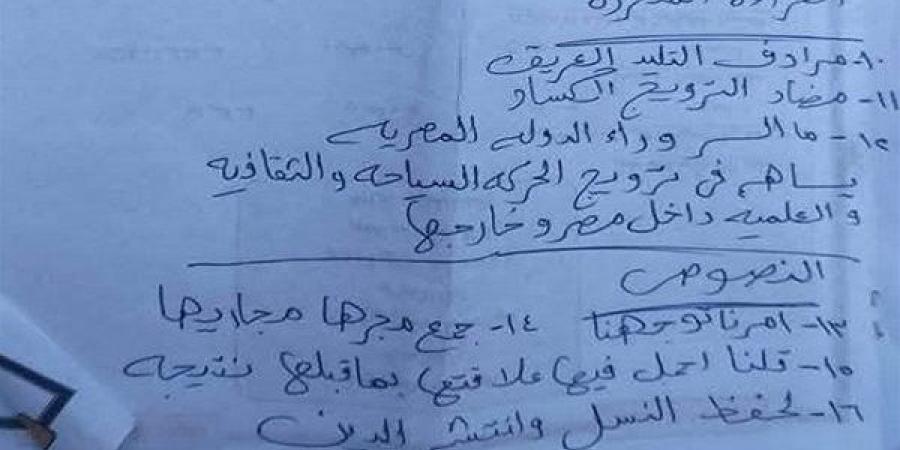 القراءة المتحررة
١٠- مرادف التليد العريق
١١- مضاد الترويج الكساد
١٢- ما السر وراء الدوله المصريه
يساهم فى ترويج الحركه السياحه والثقافيه
والعلميه داخل مصر وخارجها
النصوص
١٣- امرنا توجهنا ١٤- جمع مجرها مجاريها
١٥- قلنا احمل فيها علاقتها بما قبلها نتيجه
١٦- لحفظ النسل وانتشر الدين